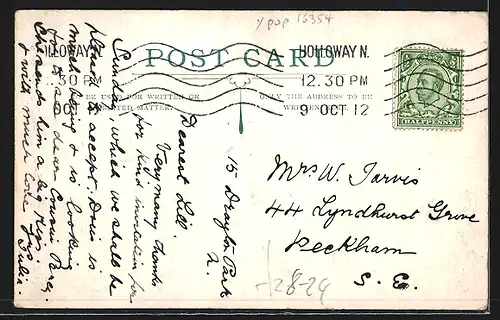 y pop 16354
POST CARD
HOLLOWAY N.
12.30 PM
9 OCT 12
HOLLOWAY
.30 PM
OCT
BE USED FOR WRITTEN OR
PRINTED MATTER.
ONLY THE ADDRESS TO BE
WRITTEN
HALFPENNY
15 Drayton Park
N.
Dearest Lill.
Very many thanks
for kind invitation for
Sunday which we shall be
pleased to accept. Doris is
much better & is looking
to see dear Cousin Percy
& sends him a big kiss
& with much love Julia.
Mrs W. Jarvis
44 Lyndhurst Grove
Peckham
S. E.
28-24